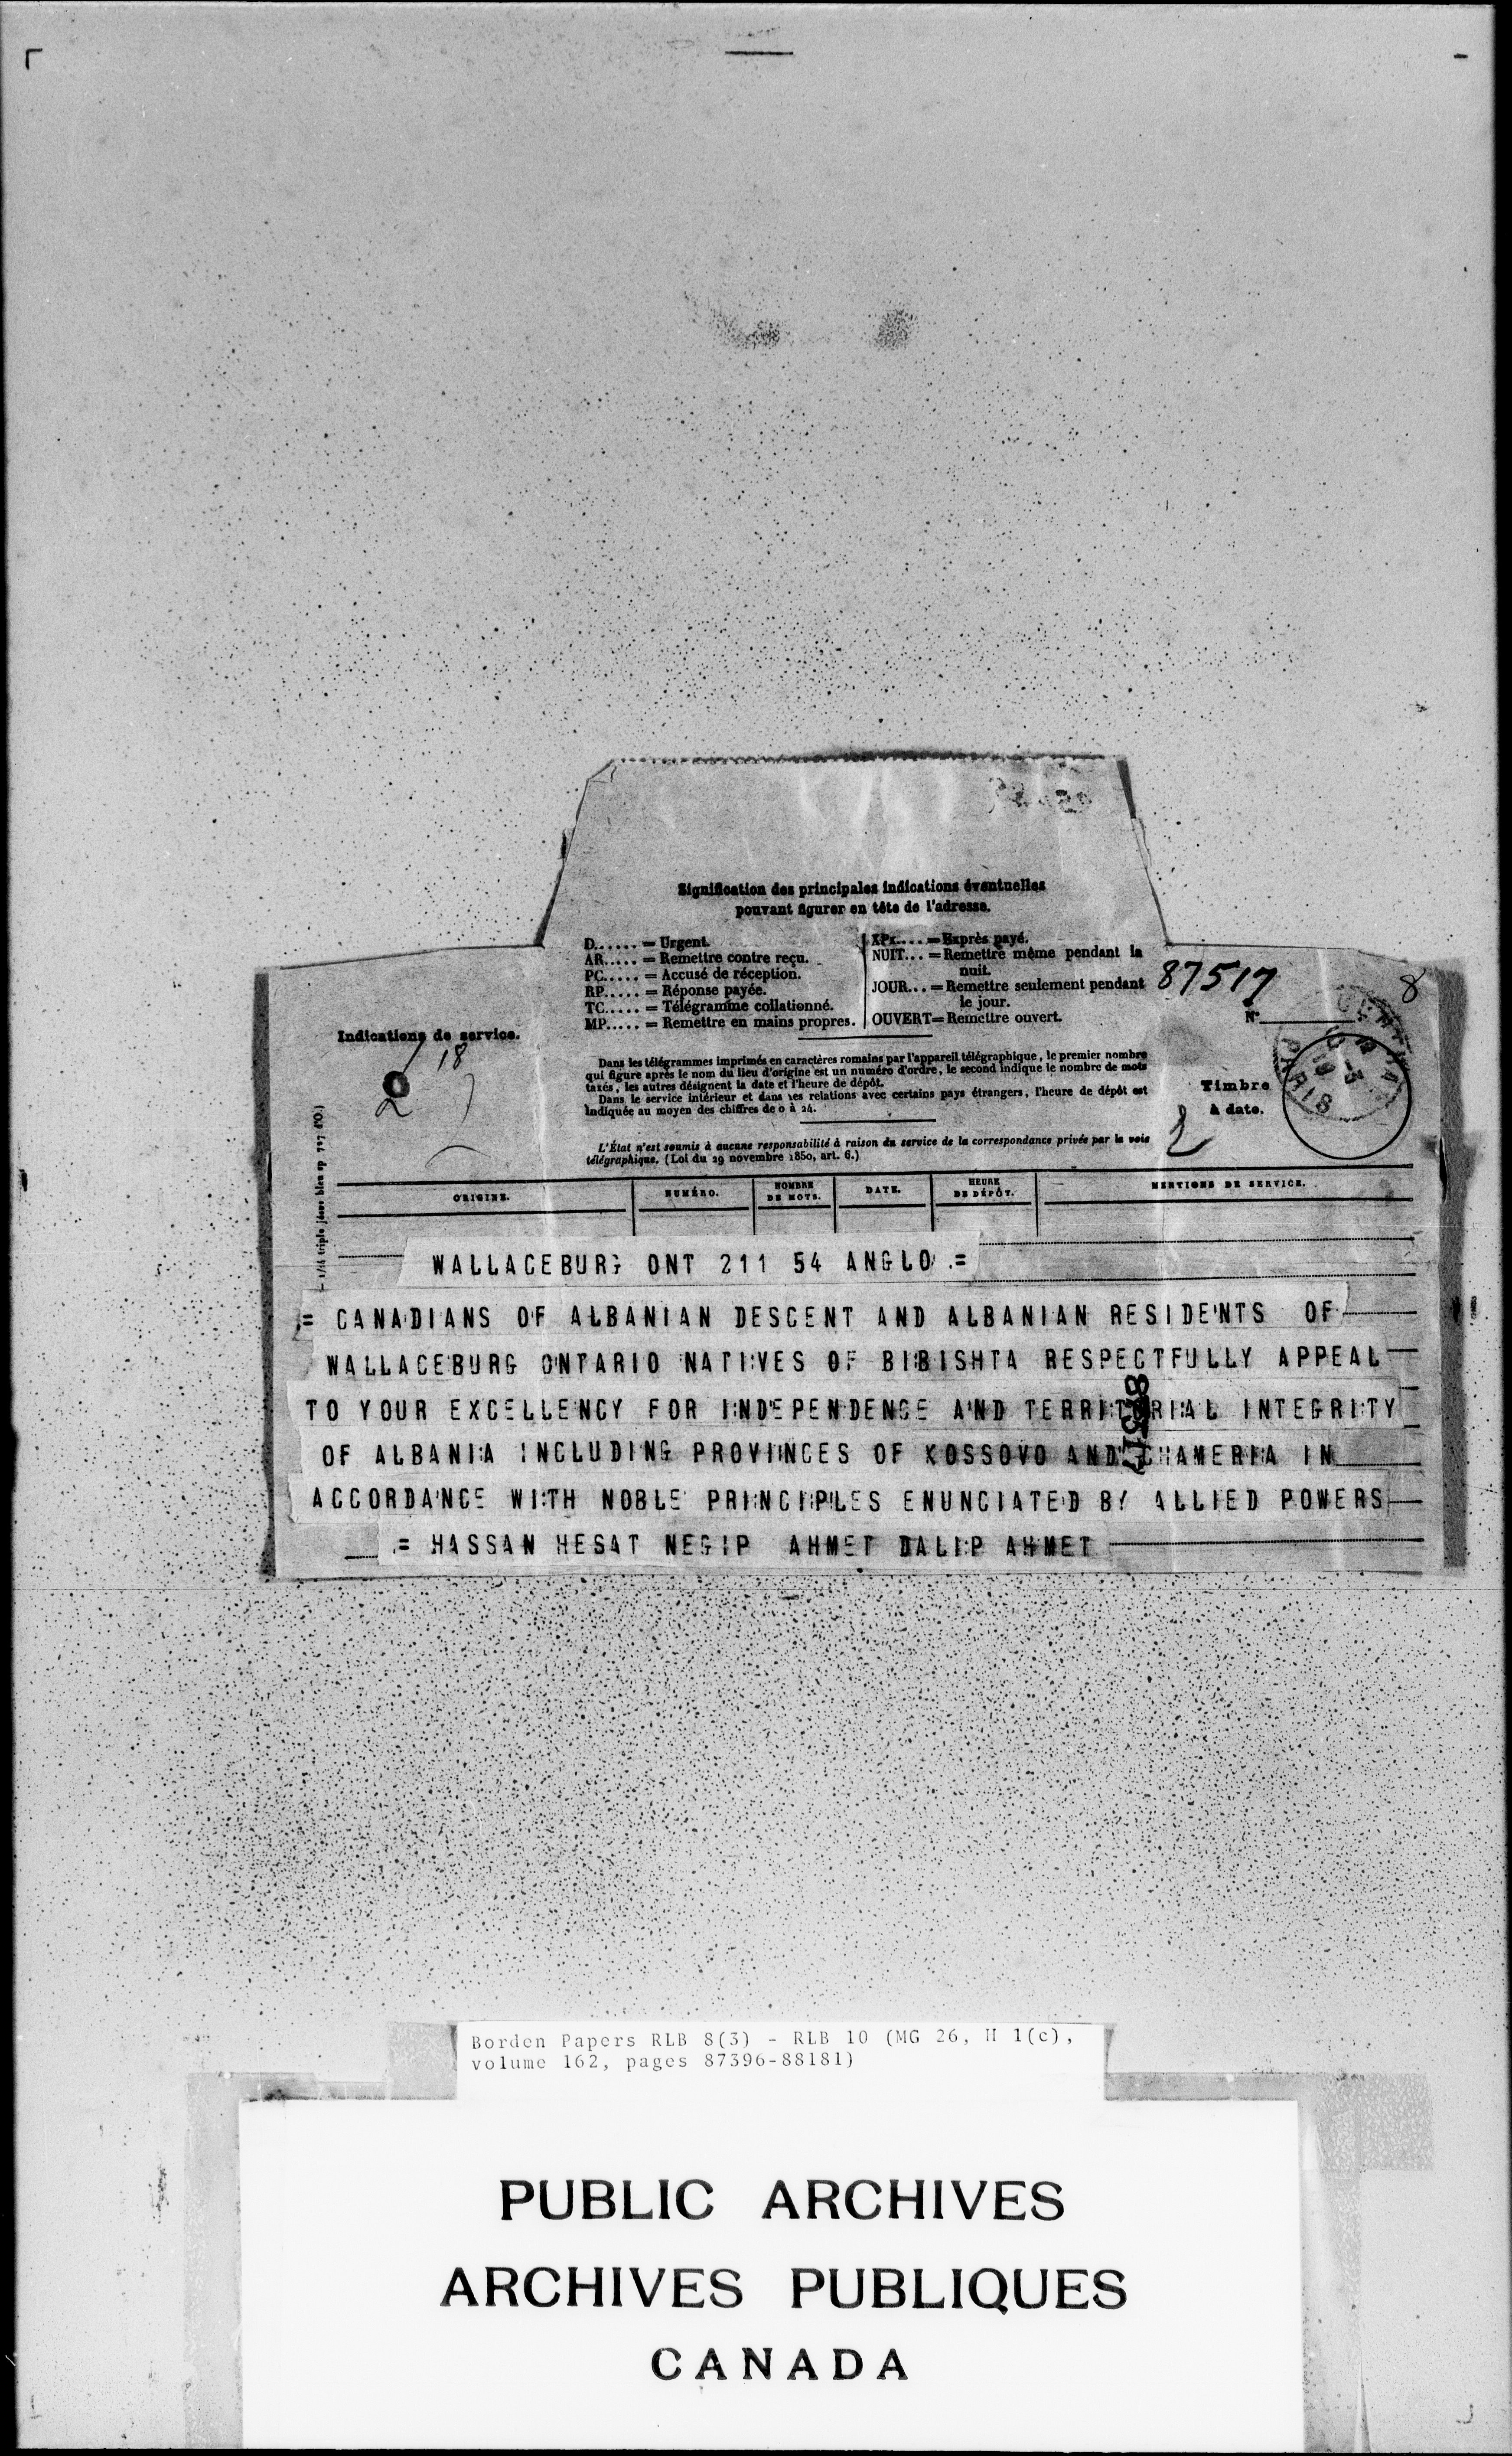 Signification des principales indications éventuelles
pouvant figurer en tête de l'adresse.
D...... = Urgent.
AR..... = Remettre contre reçu.
PC..... = Accusé de réception.
RP..... = Réponse payée.
TC..... = Télégramme collationné.
MP..... = Remettre en mains propres.
XPx.... = Exprès payé.
NUIT... = Remettre même pendant la
nuit.
JOUR... = Remettre seulement pendant
le jour.
OUVERT= Remettre ouvert.
87517
8
N°
Indications de service.
18
2
Dans les télégrammes imprimés en caractères romains par l'appareil télégraphique, le premier nombre
qui figure après le nom du lieu d'origine est un numéro d'ordre, le second indique le nombre de mots
taxés, les autres désignent la date et l'heure de dépôt.
Dans le service intérieur et dans les relations avec certains pays étrangers, l'heure de dépôt est
indiquée au moyen des chiffres de 0 à 24.
L'État n'est soumis à aucune responsabilité à raison du service de la correspondance privée par la voie
télégraphique. (Loi du 29 novembre 1850, art. 6.)
Timbre
à date.
PARIS
ORIGINE.
NUMÉRO.
NOMBRE
DE MOTS.
DATE.
HEURE
DE DÉPÔT.
MENTIONS DE SERVICE.
WALLACEBURG ONT 211 54 ANGLO =
= CANADIANS OF ALBANIAN DESCENT AND ALBANIAN RESIDENTS OF
WALLACEBURG ONTARIO NATIVES OF BIBISHTA RESPECTFULLY APPEAL
TO YOUR EXCELLENCY FOR INDEPENDENCE AND TERRITORIAL INTEGRITY
OF ALBANIA INCLUDING PROVINCES OF KOSSOVO AND CHAMERIA IN
ACCORDANCE WITH NOBLE PRINCIPLES ENUNCIATED BY ALLIED POWERS
= HASSAN HESAT NEGIP AHMET DALIP AHMET
Borden Papers RLB 8(3) - RLB 10 (MG 26, H 1(c),
volume 162, pages 87396-88181)
PUBLIC ARCHIVES
ARCHIVES PUBLIQUES
CANADA